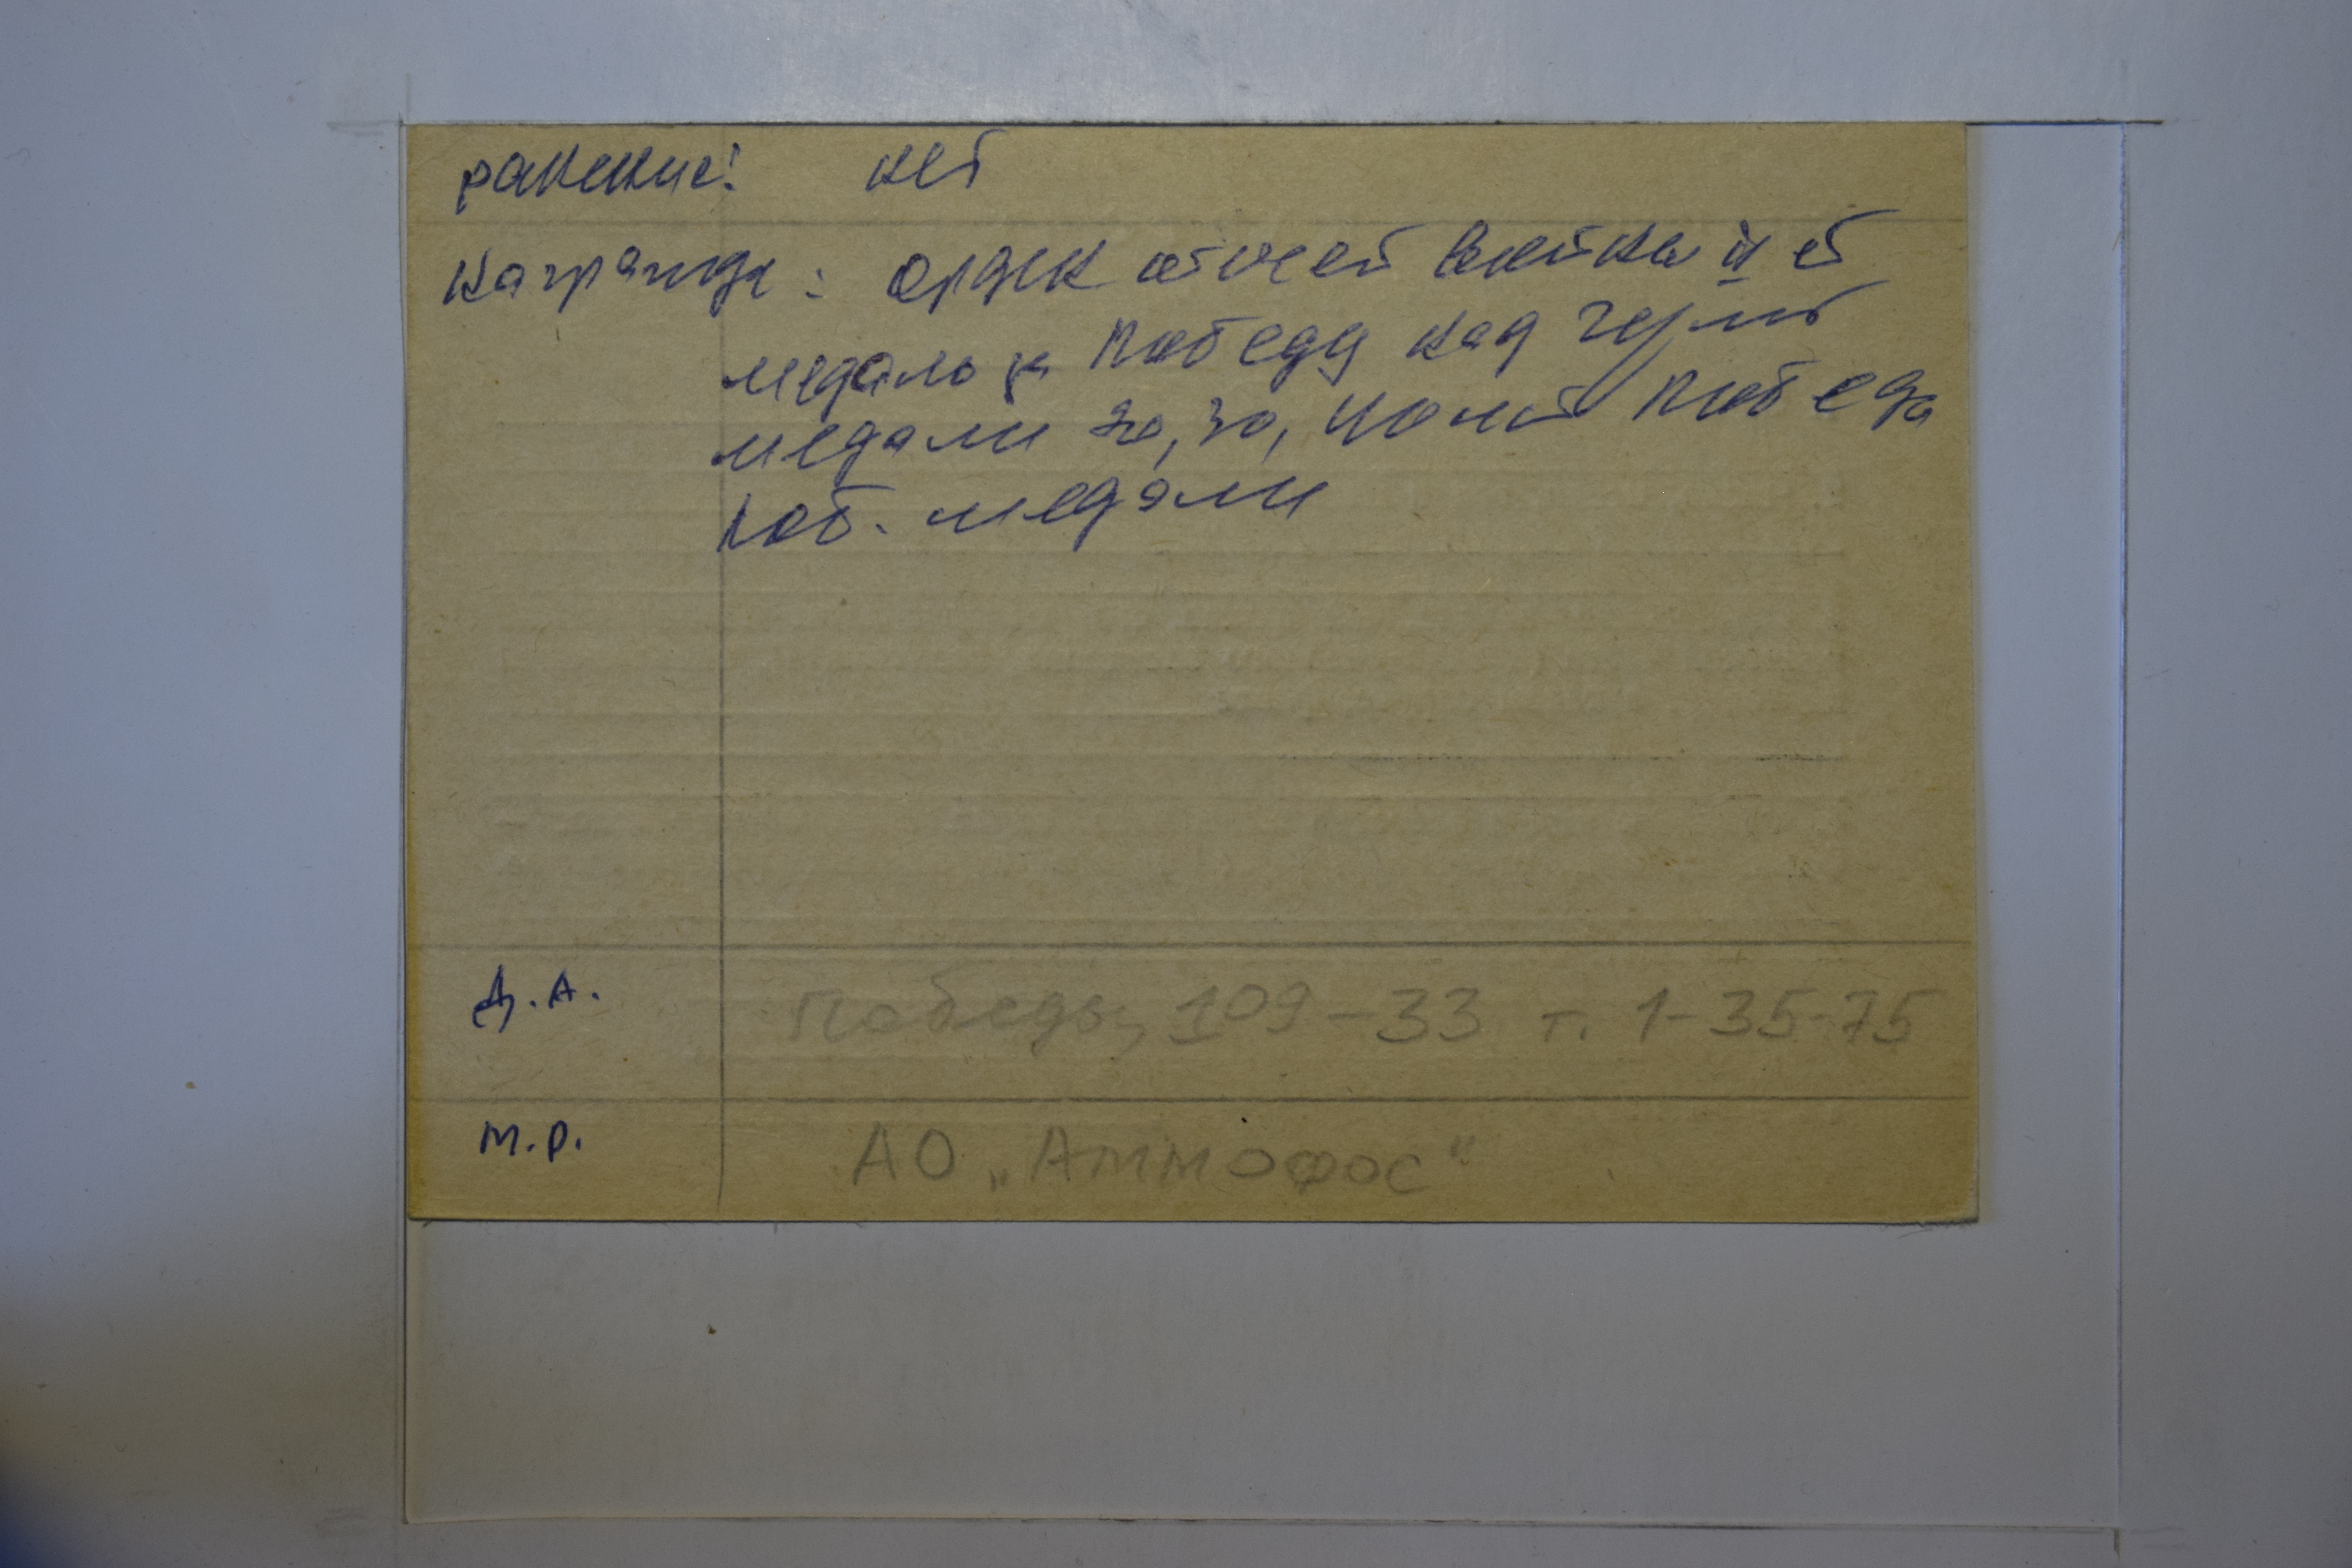 ранение: нет
награжда: орден отчест войны II ст
медаль за победу над герм
медали 20, 30, 40 лет победа
юб. медали
Д.А. Победы, 109-33 т. 1-35-75
М.Р. АО „Аммофос"